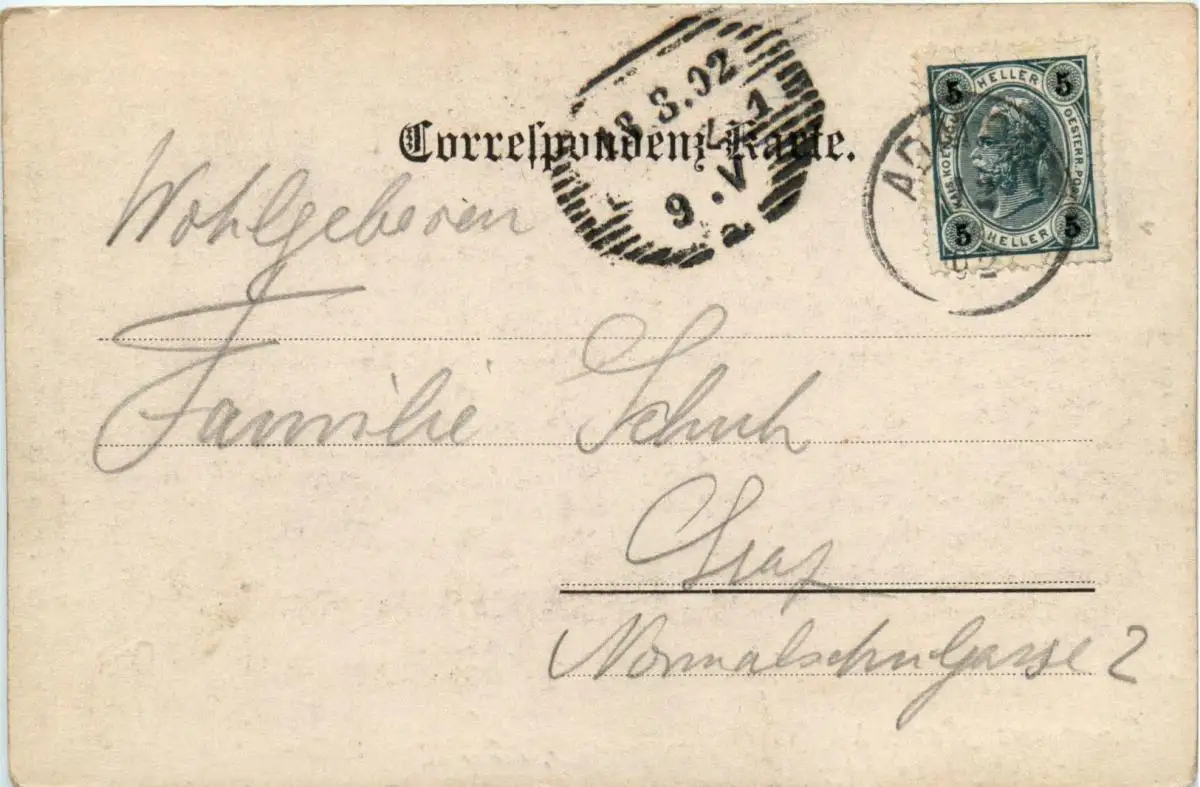 Correspondenz-Karte.
8.8.02
9.V
5 HELLER 5
OESTERR. POST
5 HELLER 5
02
Wohlgeboren
Familie Schuh
Graz
Normalschulgasse 2